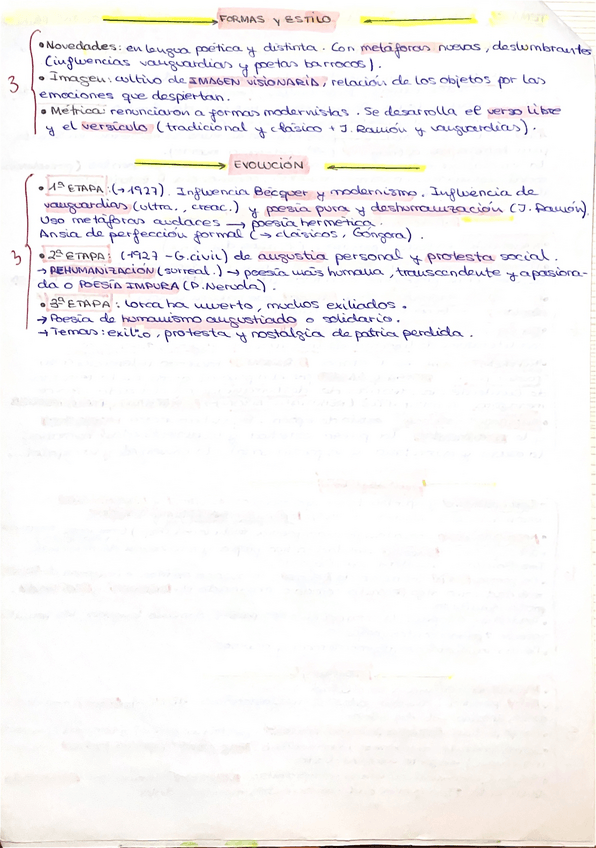 FORMAS y ESTILO
• Novedades: en lengua poética y distinta. Con metáforas nuevas, deslumbrantes
(influencias vanguardias y poetas barrocos).
3
• Imagen: cultivo de IMAGEN VISIONARIA, relación de los objetos por las
emociones que despiertan.
• Métrica: renunciaron a formas modernistas. Se desarrolla el verso libre
y el versículo (tradicional y clásico + J. Ramón y vanguardias).
EVOLUCIÓN
• 1ª ETAPA: (→ 1927). Influencia Bécquer y modernismo. Influencia de
vanguardias (ultra., creac.) y poesía pura y deshumanización (J. Ramón).
Uso metáforas audaces → poesía hermética.
Ansia de perfección formal (→ clásicos, Góngora).
3
• 2ª ETAPA: (1927 - G.civil) de angustia personal y protesta social.
→ REHUMANIZACIÓN (surreal.) → poesía más humana, transcendente y apasiona-
da o POESÍA IMPURA (P. Neruda).
• 3ª ETAPA: Lorca ha muerto, muchos exiliados.
→ Poesía de humanismo angustiado o solidario.
→ Temas: exilio, protesta y nostalgia de patria perdida.